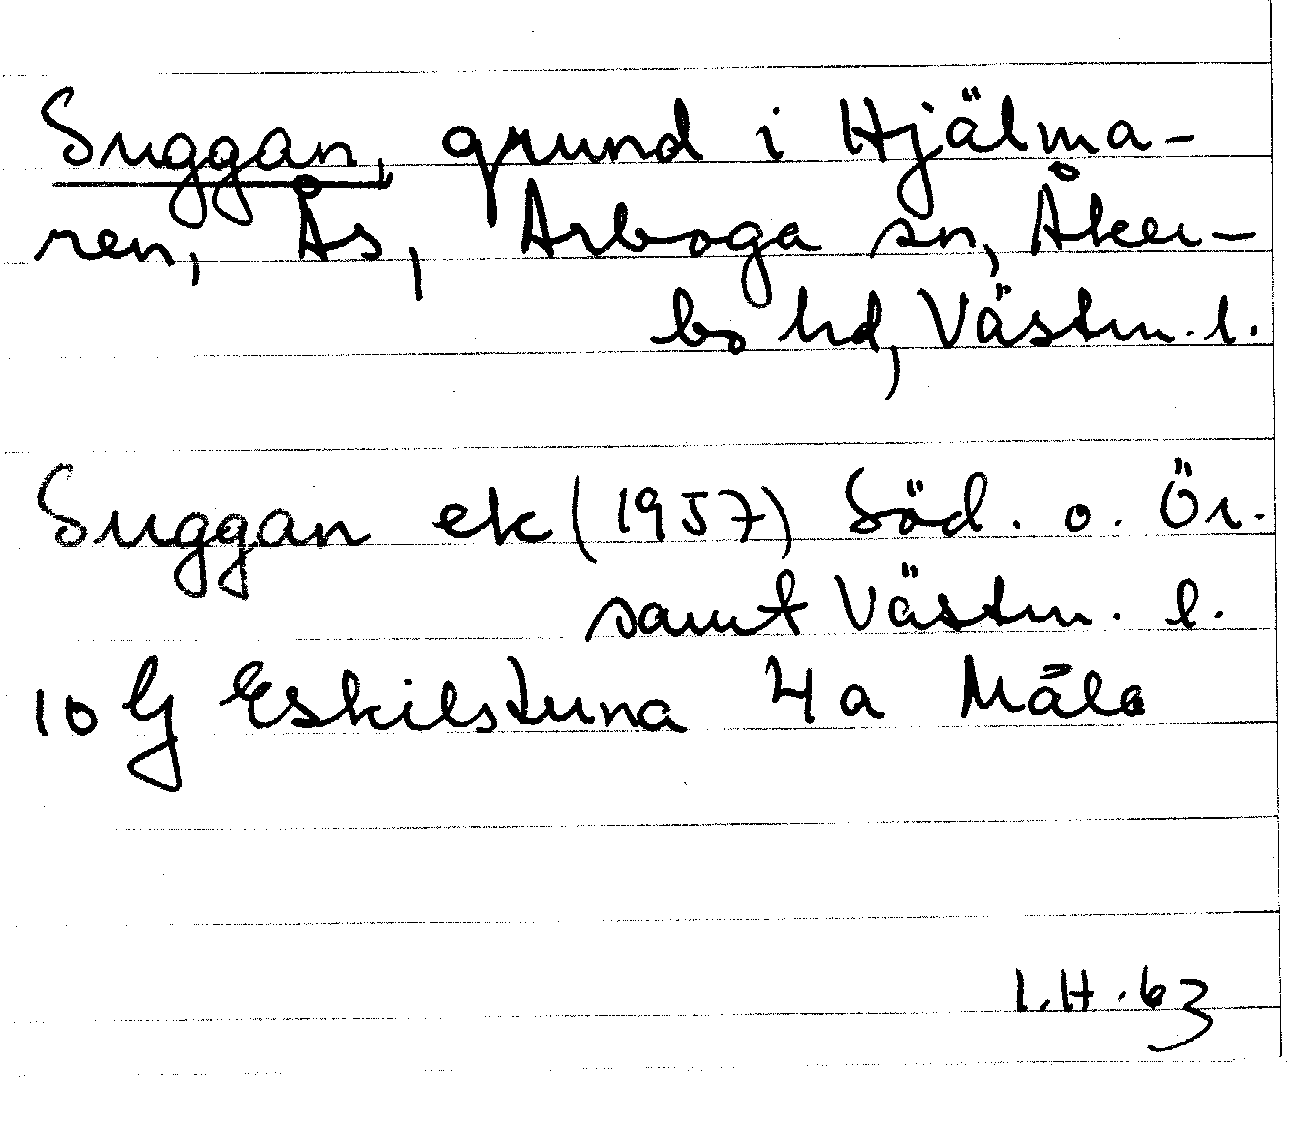 Suggan, grund i Hjälma-
ren, Ås, Arboga sn, Åker-
bo hd, Västm. l.
Suggan ek (1957) Söd. o. Ör.
samt Västm. l.
10 G Eskilstuna 4 a Måla
I.H. 63